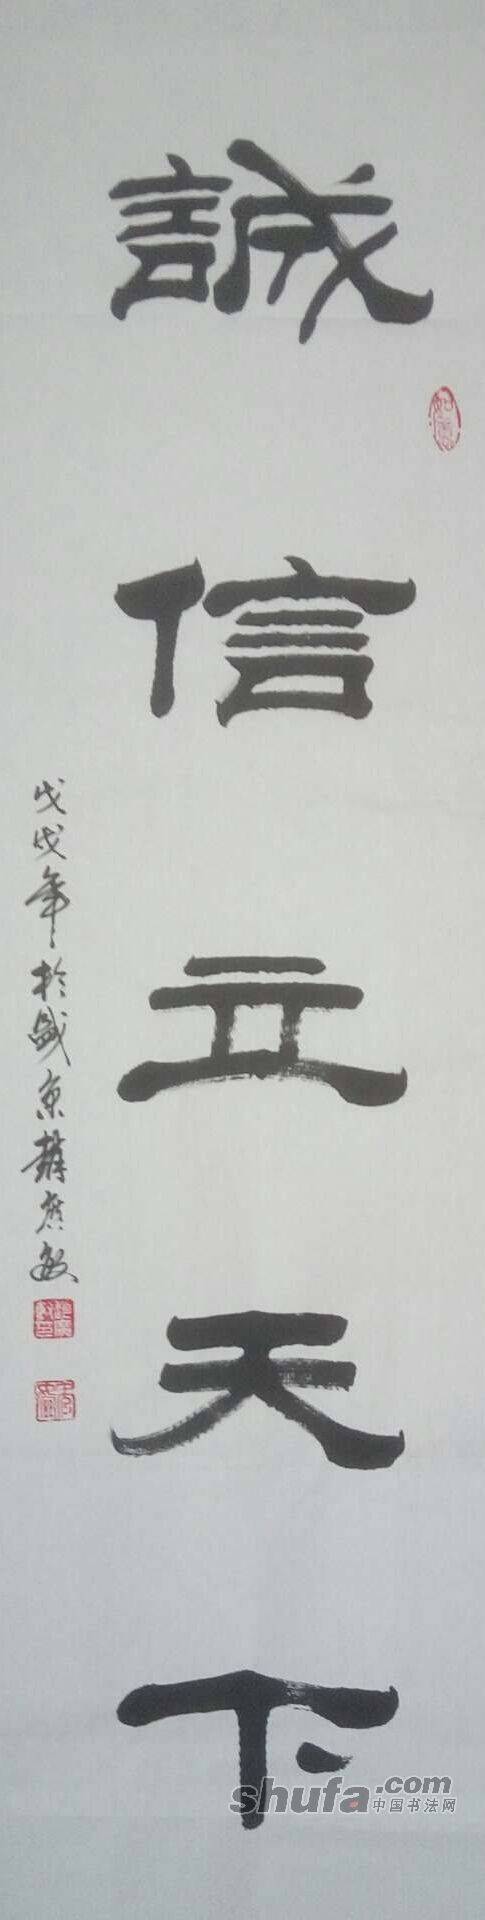 誠信立天下
戊戌年於盛京趙彦敏
shufa.com
中国书法网